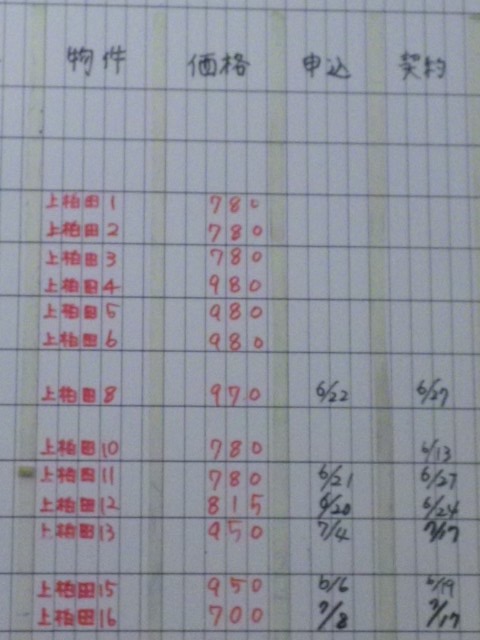 物件 価格 申込 契約
上柏田1 780
上柏田2 780
上柏田3 780
上柏田4 980
上柏田5 980
上柏田6 980
上柏田8 970 6/22 6/27
上柏田10 780 6/13
上柏田11 780 6/21 6/27
上柏田12 815 6/20 6/24
上柏田13 950 7/4 7/17
上柏田15 950 6/6 6/19
上柏田16 700 7/8 7/17